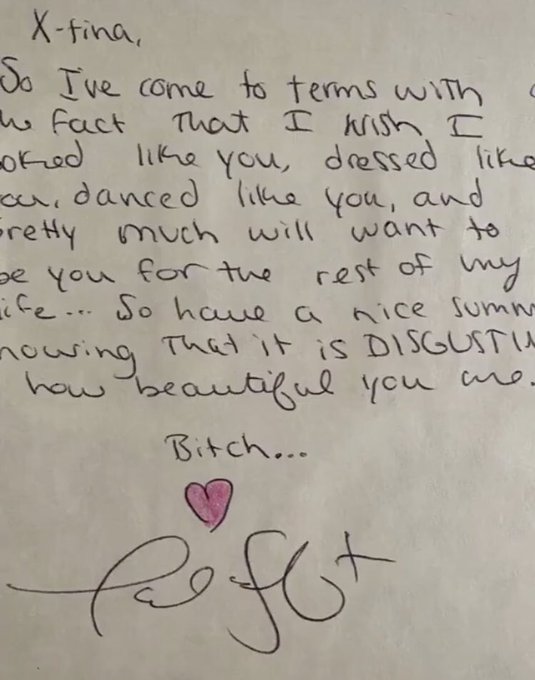 X-tina,
So I've come to terms with
he fact that I wish I
ooked like you, dressed like
ou, danced like you, and
pretty much will want to
be you for the rest of my
ife... So have a nice summ
nowing that it is DISGUSTIN
how beautiful you are.
Bitch...